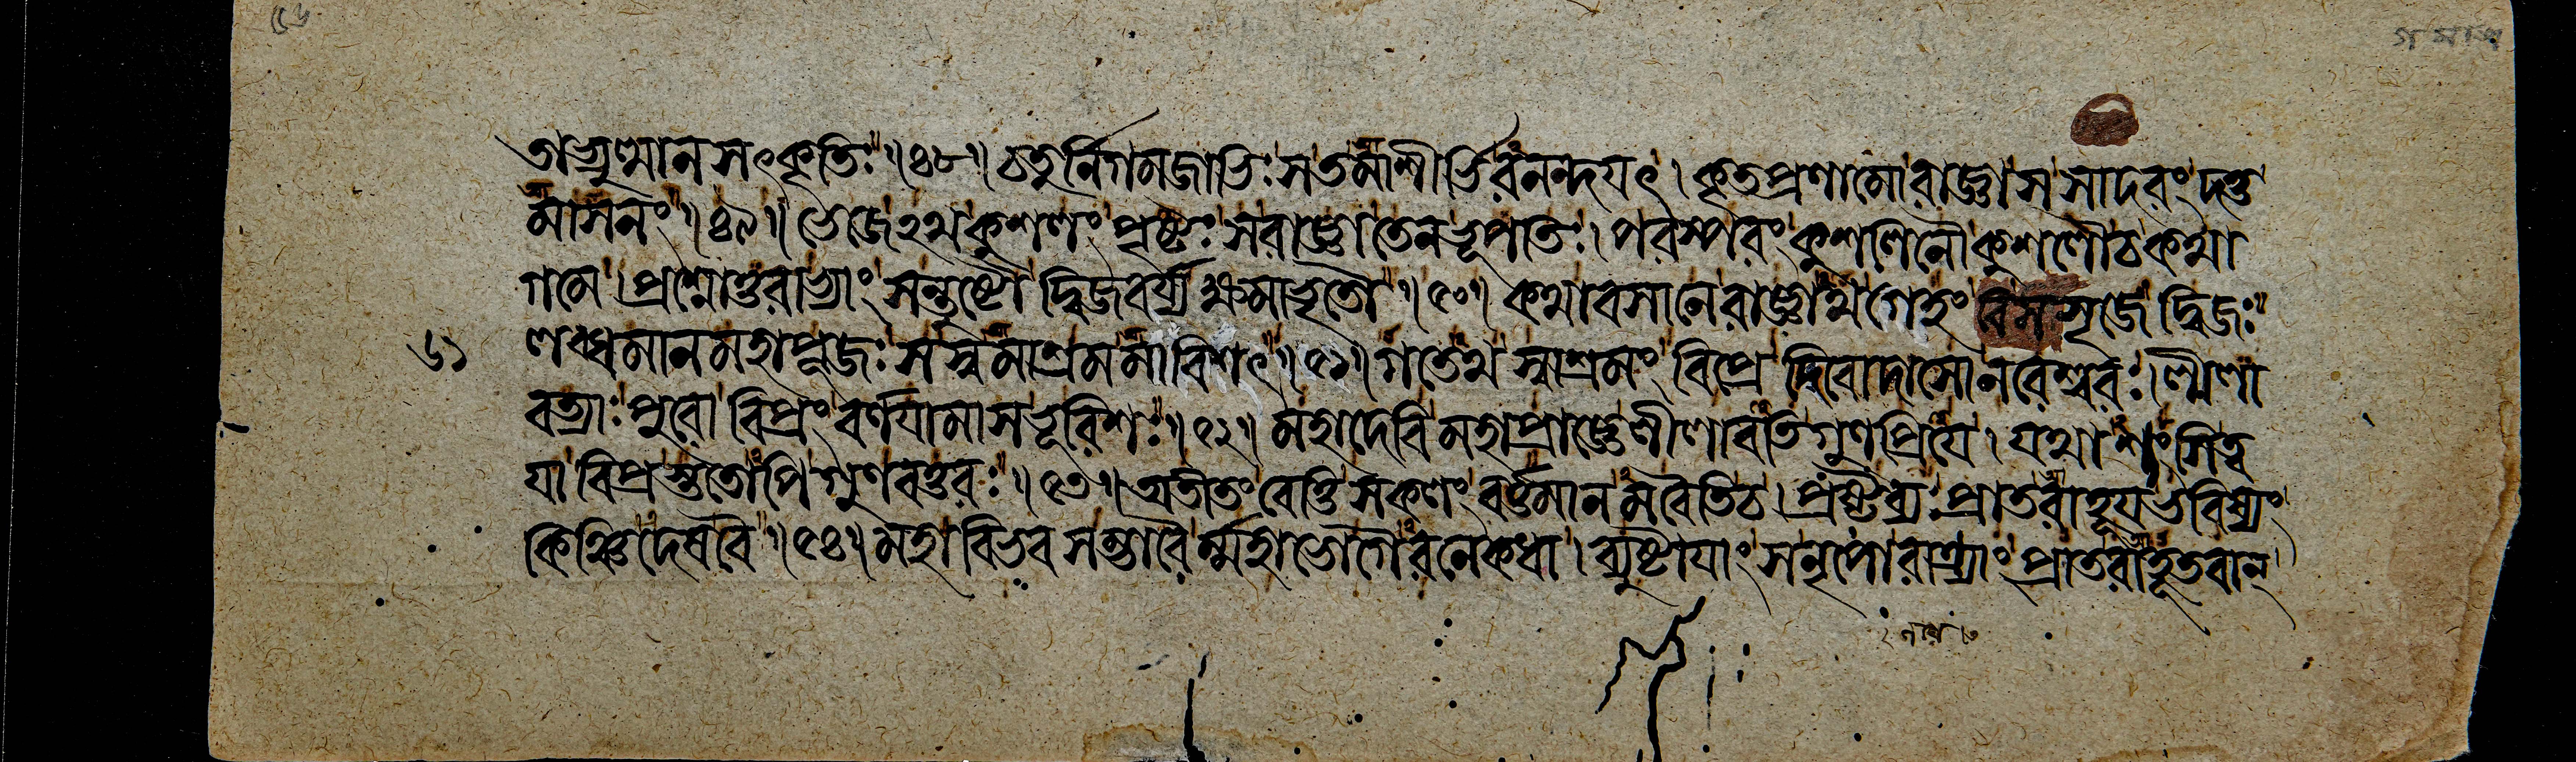 ৫৬
তাভ্যুত্থানসৎকৃতিঃ ॥৪৮॥ চতুর্নিগমজাভিঃ স তমাশীর্ভিরনন্দযৎ । কৃতপ্রণামো রাজ্ঞা স সাদরং দত্ত
মাসনং ॥৪৯॥ ভেজেঽথ কুশলং পৃষ্টঃ স রাজ্ঞা তেন ভূপতিঃ । পরস্পরং কুশলিনৌ কুশলৌ চ কথা
গমে । প্রশ্নোত্তরাভ্যাং সন্তুষ্টৌ দ্বিজবর্য্যক্ষমাভৃতৌ ॥৫০॥ কথাবসানে রাজ্ঞাথ গেহং বিসসৃজে দ্বিজঃ
৬১ লব্ধমানমহাপূজঃ স স্বমাশ্রমমাবিশৎ ॥৫১॥ গতেথ স্বাশ্রমং বিপ্রে দিবোদাসো নরেশ্বরঃ । লীলা
বত্যাঃ পুরো বিপ্রং বর্ণযামাস ভূরিশঃ ॥৫২॥ মহাদেবি মহাপ্রাজ্ঞে লীলাবতি গুণপ্রিযে । যথাশংসি ত্ব
যা বিপ্রস্ততোপি গুণবত্তরঃ ॥৫৩॥ অতীতং বেত্তি সকলং বর্ত্তমানমবৈতি চ । প্রষ্টব্যঃ প্রাতরাহূয ভবিষ্যং
কিঞ্চিদেষ বৈ ॥৫৪॥ মহাবিভবসম্ভারৈর্ম্মহাভোগৈরনেকধা । ব্যুষ্টাযাং স নৃপো রাত্র্যাং প্রাতরাহূতবান্